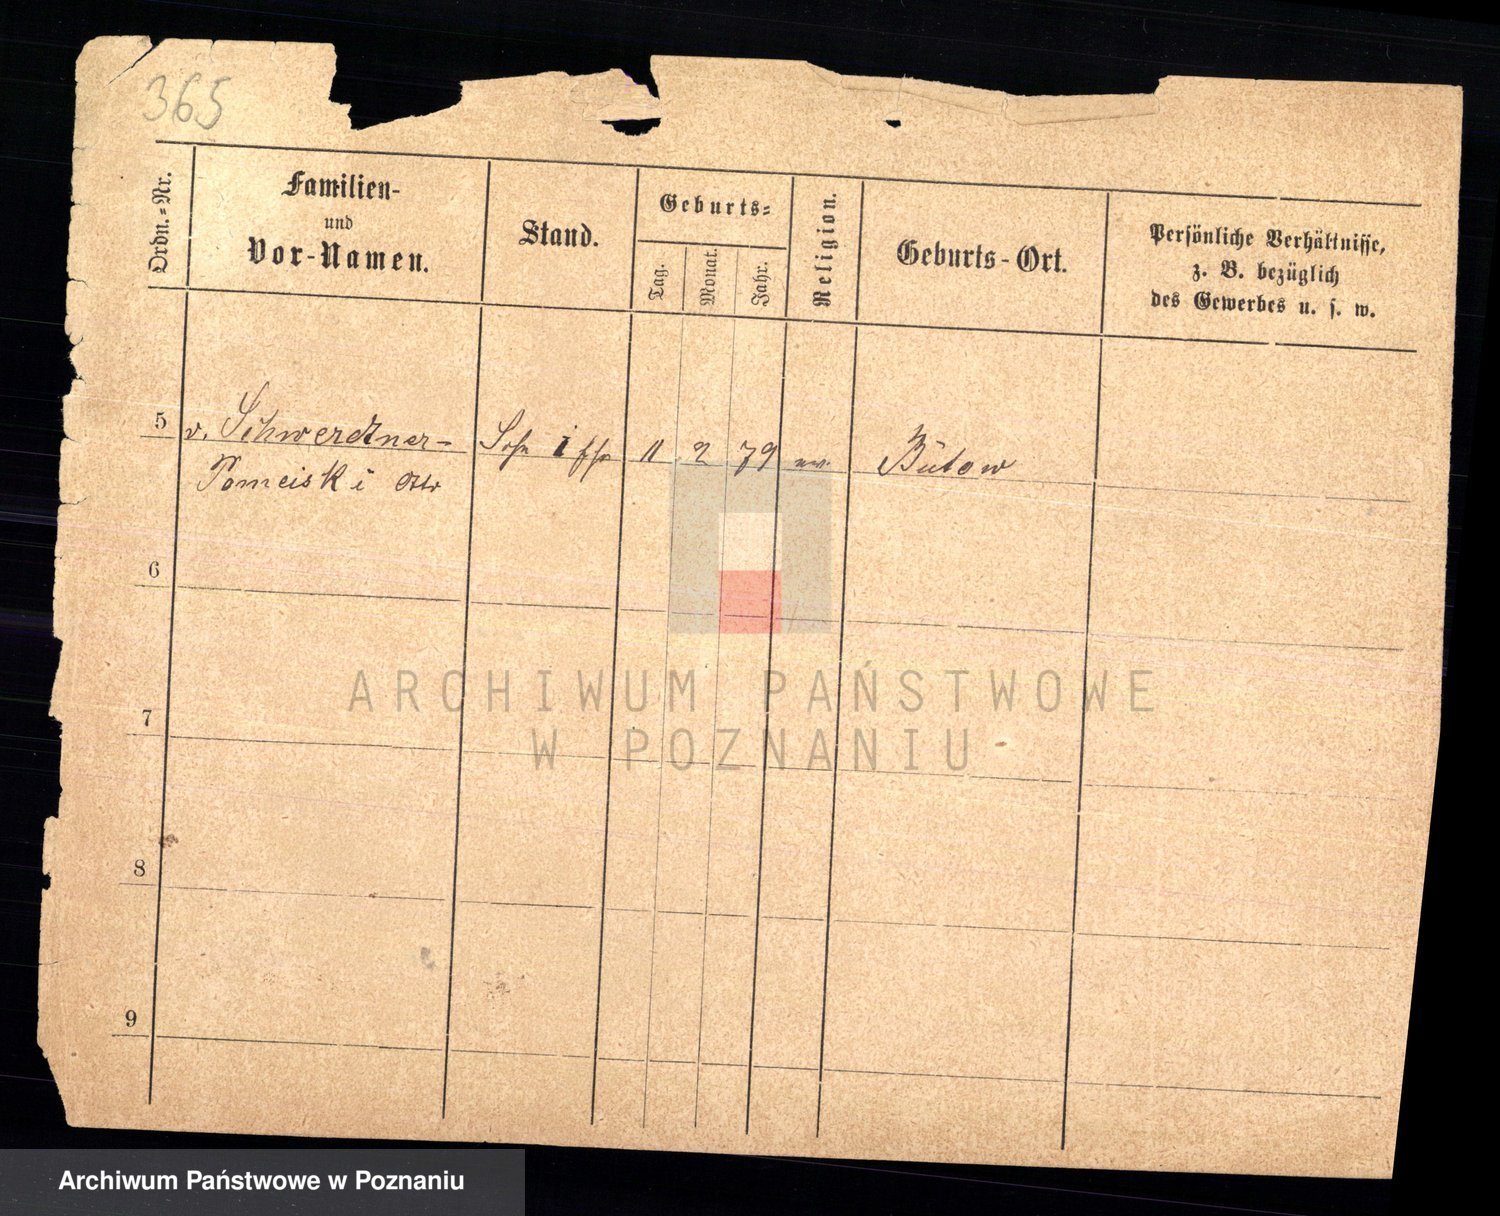 365
Ordn.=Nr.
Familien-
und
Vor-Namen.
Stand.
Geburts=
Tag.
Monat.
Jahr.
Religion.
Geburts-Ort.
Persönliche Verhältnisse,
z. B. bezüglich
des Gewerbes u. s. w.
5 v. Schwerdtner= Sohn 11 2 79 ev. Bütow
Pomeiski Otto
6
7
8
9
ARCHIWUM PAŃSTWOWE
W POZNANIU
Archiwum Państwowe w Poznaniu